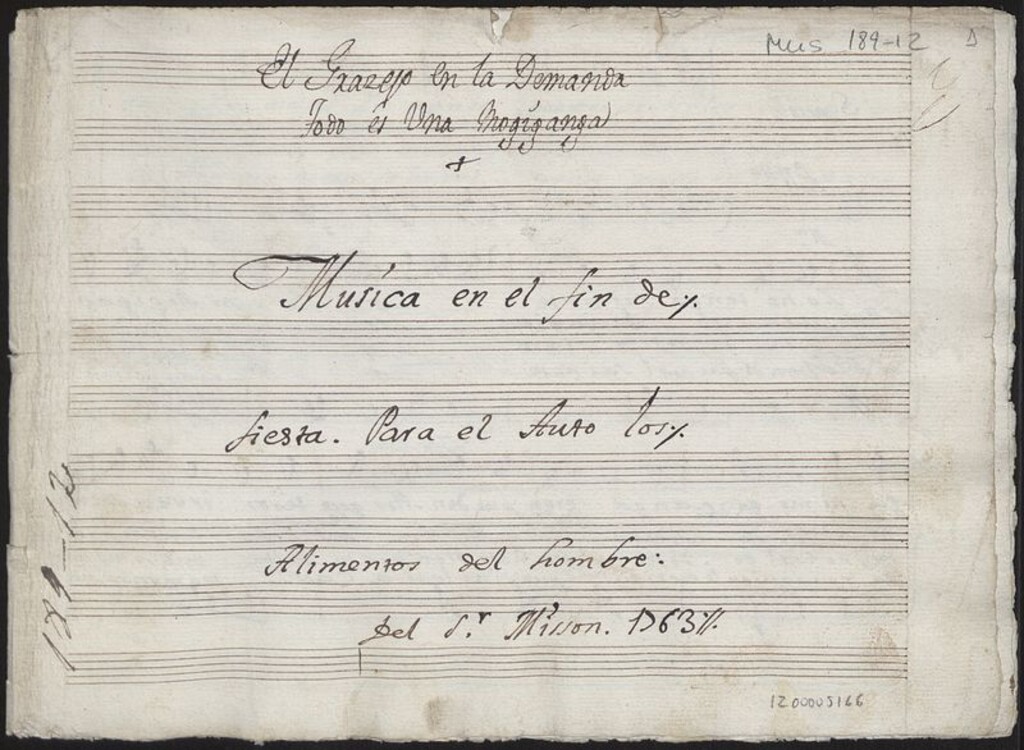 Mus 189-12
El Gracejo en la Demanda
Todo es Una Mogiganga
Musica en el fin de
fiesta. Para el Auto los
Alimentos del hombre:
Del S.r Misson. 1763
189-12
1200005166